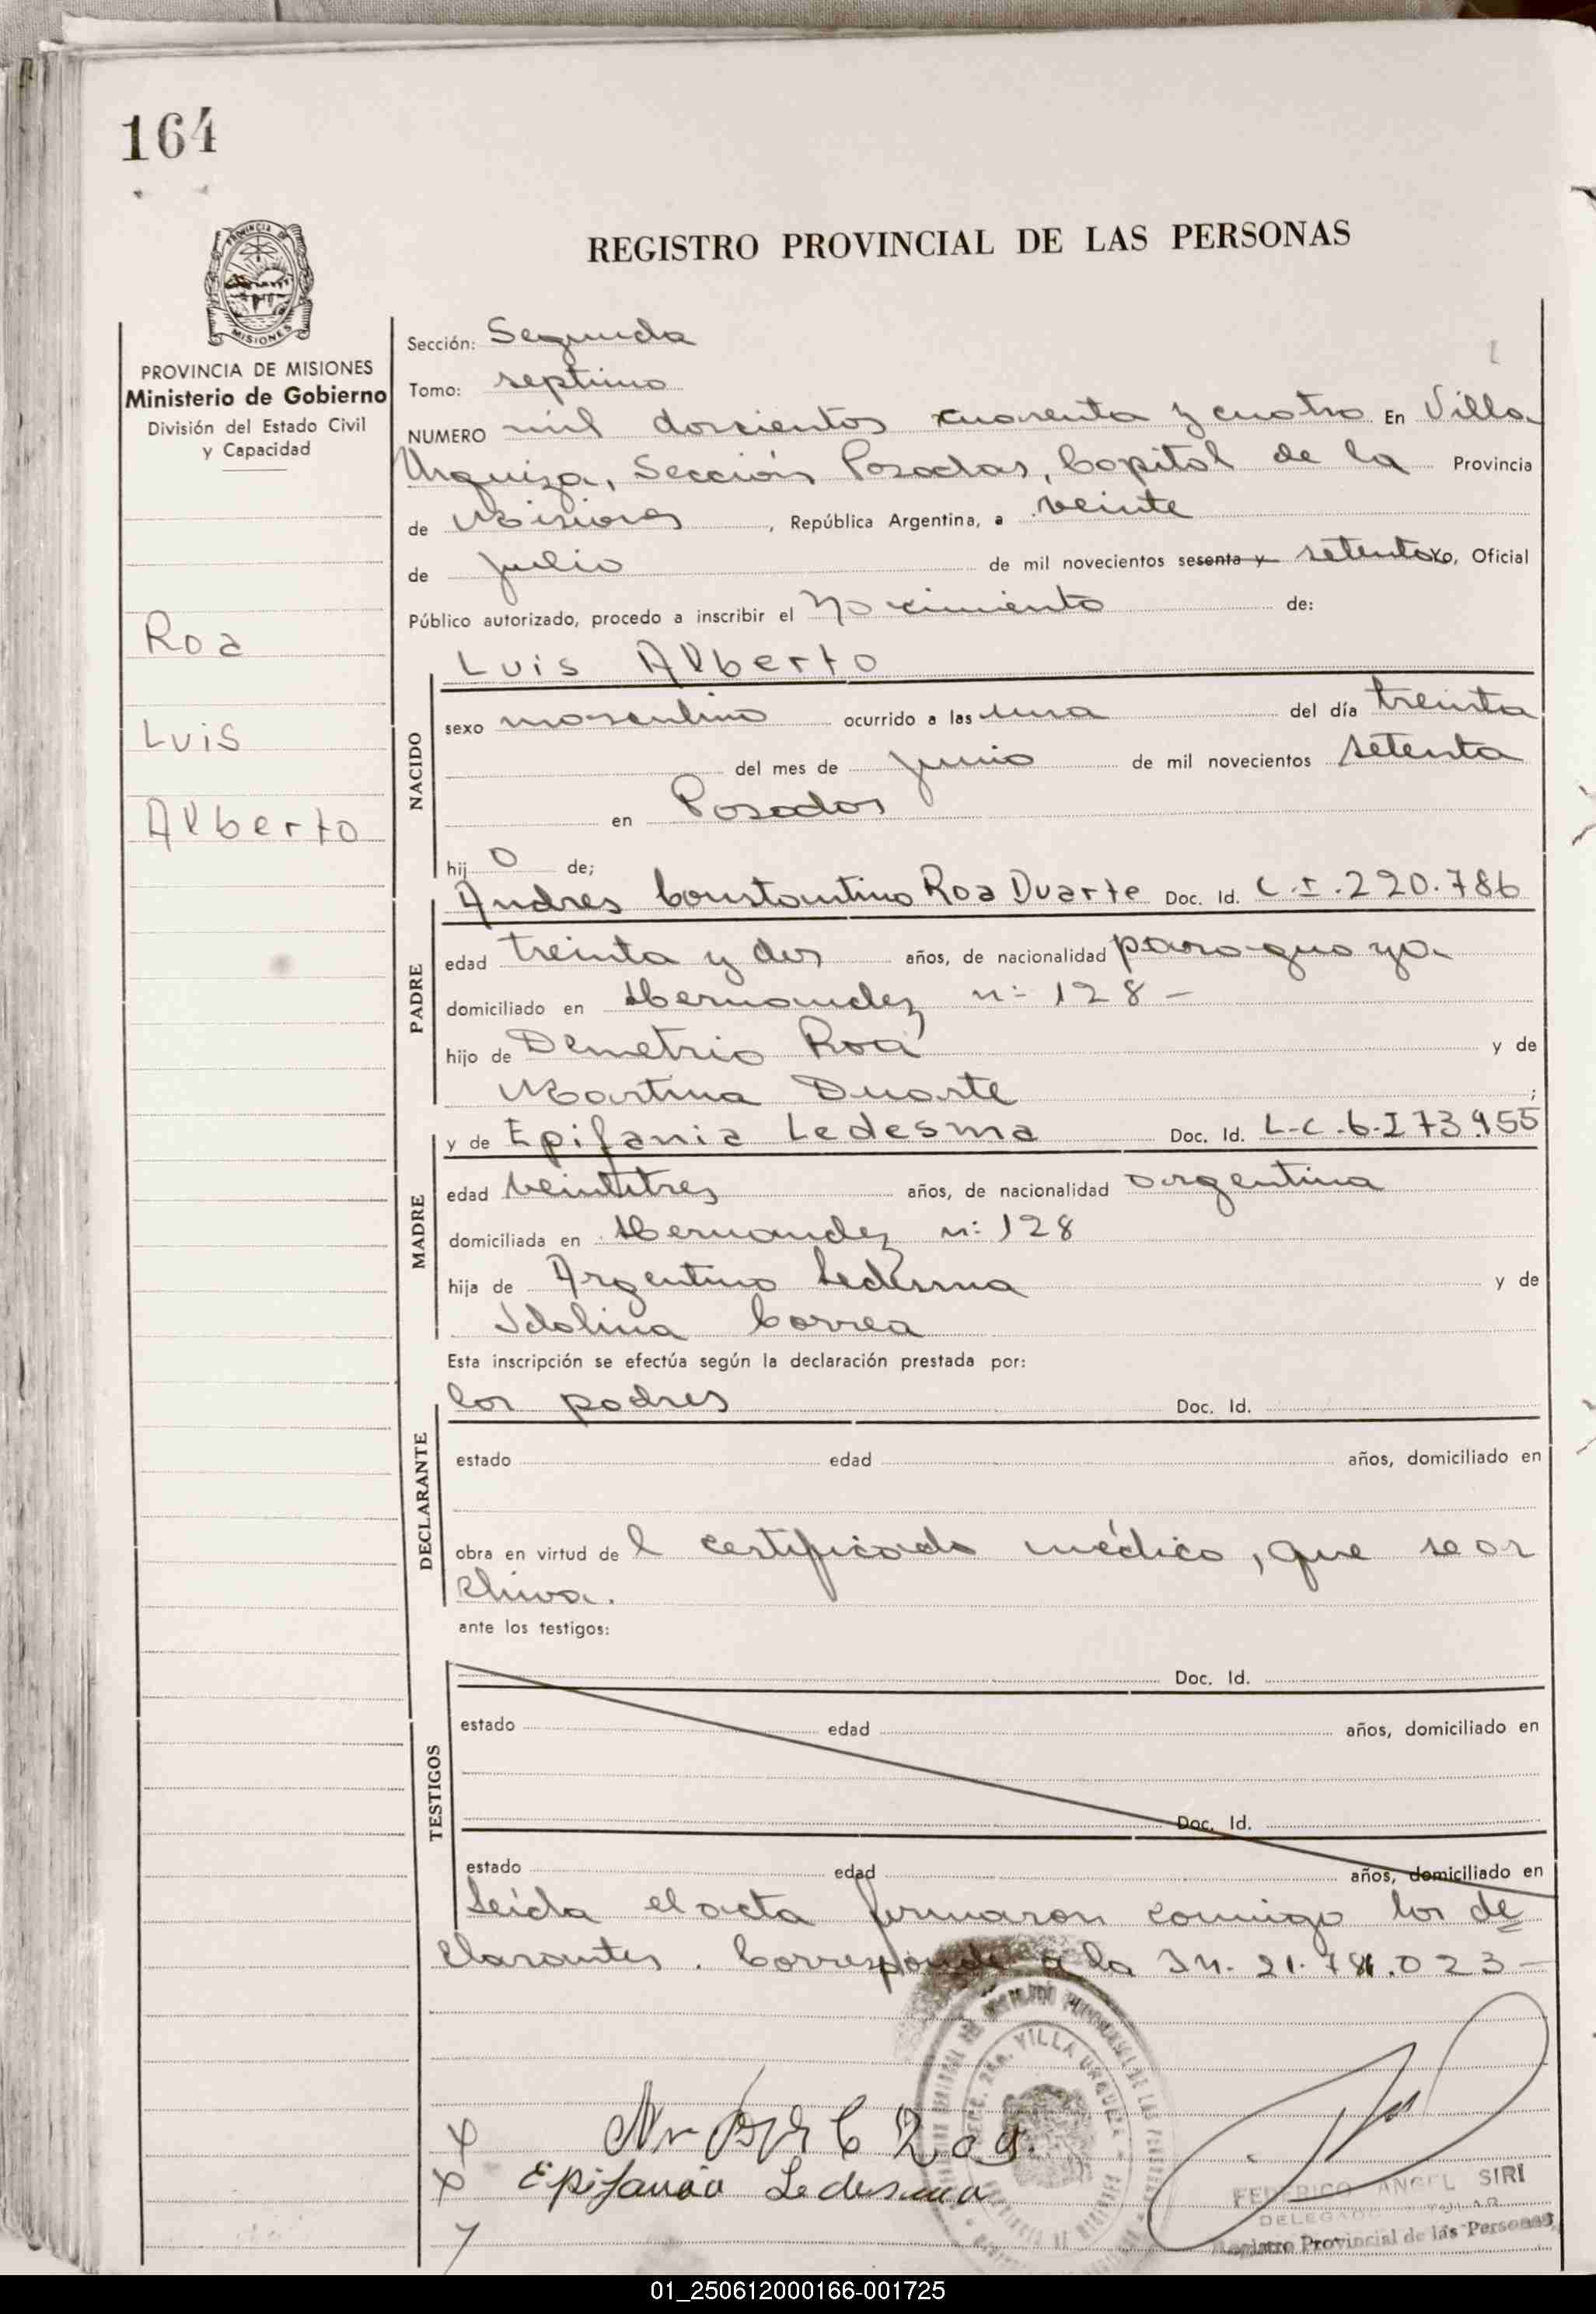 164
REGISTRO PROVINCIAL DE LAS PERSONAS
PROVINCIA DE MISIONES
MISIONES
PROVINCIA DE MISIONES
Ministerio de Gobierno
División del Estado Civil
y Capacidad
Roa
Luis
Alberto
Sección: Segunda
Tomo: septimo
NUMERO mil doscientos cuarenta y cuatro En Villa
Urquiza, Sección Posadas, Capital de la Provincia
de Misiones, República Argentina, a veinte
de julio de mil novecientos sesenta y setenta yo, Oficial
Público autorizado, procedo a inscribir el Nacimiento de:
NACIDO
Luis Alberto
sexo masculino ocurrido a las una del día treinta
del mes de junio de mil novecientos setenta
en Posadas
hij o de;
PADRE
Andres Constantino Roa Duarte Doc. Id. C.I. 220.786
edad treinta y dos años, de nacionalidad paraguaya
domiciliado en Hernandez n: 128 -
hijo de Demetrio Roa y de
Martina Duarte ;
MADRE
y de Epifania Ledesma Doc. Id. L-C. 6.I73.955
edad veintitres años, de nacionalidad argentina
domiciliada en Hernandez n: 128
hija de Argentino Ledesma y de
Idolina Correa
Esta inscripción se efectúa según la declaración prestada por:
DECLARANTE
los padres Doc. Id.
estado edad años, domiciliado en
obra en virtud de l certificado médico, que se ar
chiva.
ante los testigos:
TESTIGOS
Doc. Id.
estado edad años, domiciliado en
Doc. Id.
estado edad años, domiciliado en
Leída el acta firmaron conmigo los de
clarantes. Corresponde a la IN. 21.781.023 -
C Roa
Epifania Ledesma
VILLA URQUIZA
FEDERICO ANGEL SIRI
DELEGADO TITULAR
Registro Provincial de las Personas
01_250612000166-001725